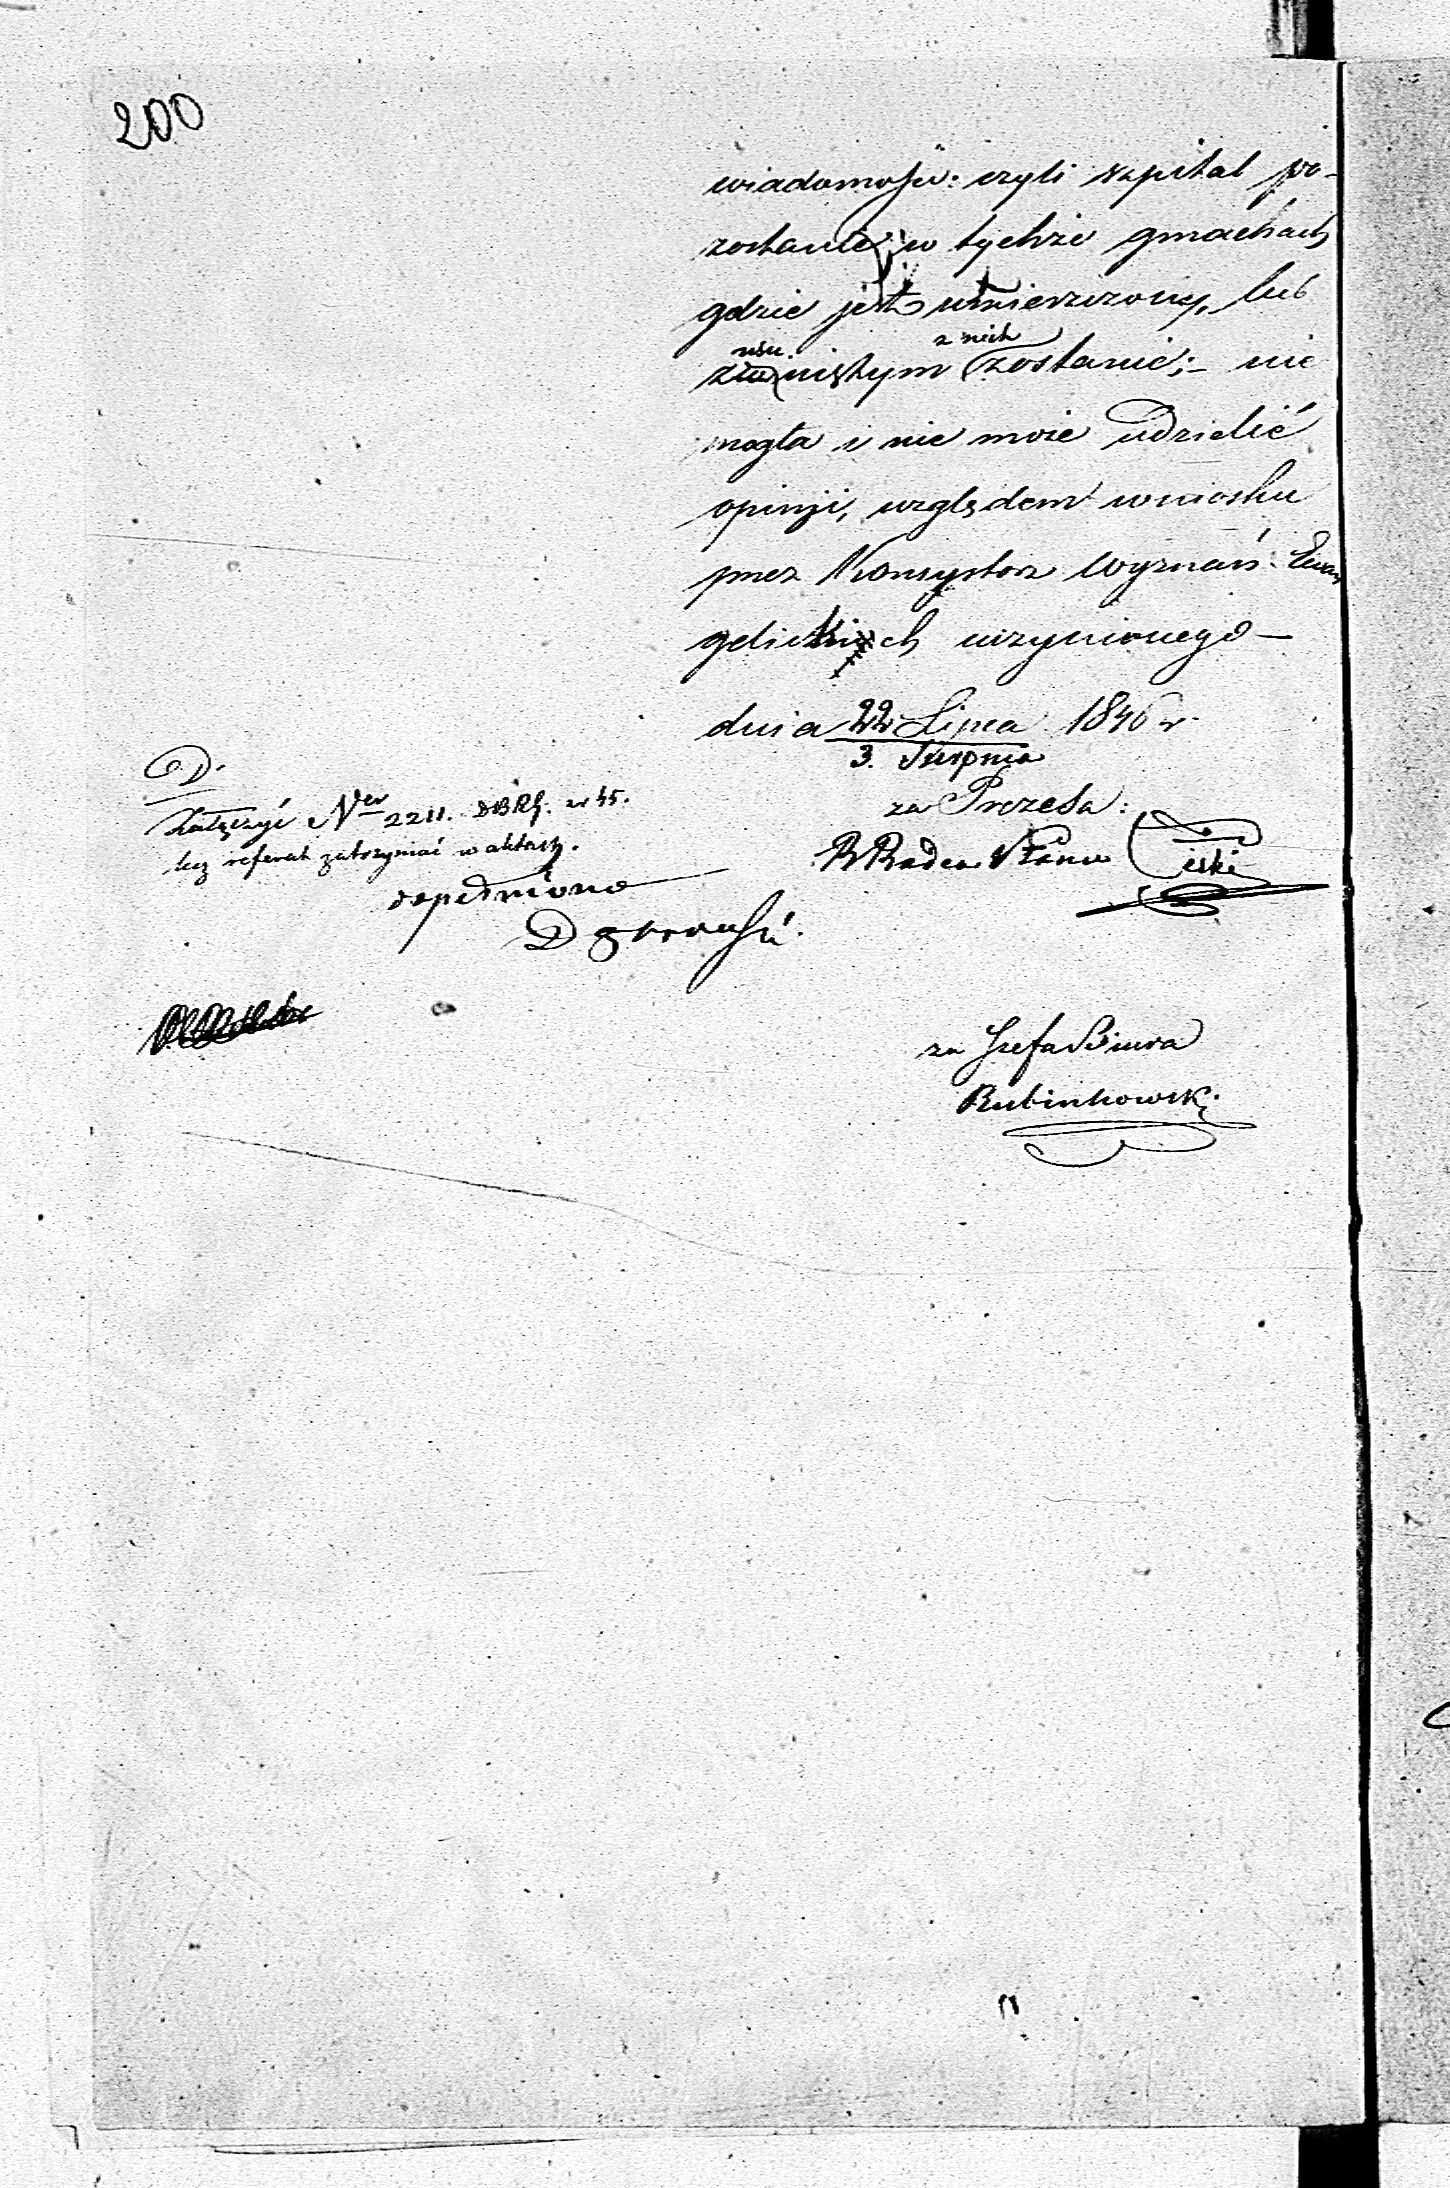 200
wiadomości: czyli szpital po-
zostanie w tychże gmachach
gdzie jest umieszczony, lub
usu z nich
niętym zostanie; – nie
mogła i nie może udzielić
opinji, względem wniosku
przez Konsystorz Wyznań Ewan
gelickich uczynionego –
dnia 22 Lipca 1846 r.
3. Sierpnia
za Prezesa:
R Radca Stanu
D.
Załączyć Ner 2211. DBRG. zr 45.
lecz referat zatrzymać w aktach.
dopełniono
za Szefa Biura
Rubinkowski